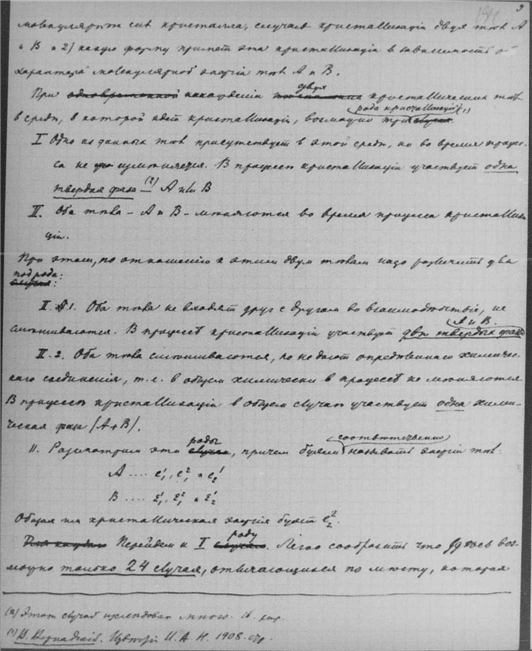 молекулярных сил кристалла, случаев кристаллизации двух тел А
и В и 2) какую форму примет эта кристаллизация в зависимости от
характера молекулярной энергии тел А и В.
При одновременном нахождении двух кристаллических тел
в среде, в которой идет кристаллизация, возможны три рода кристаллизаций:
I Одно из данных тел присутствует в этой среде, но во время процес-
са не изменяется. В процессе кристаллизации участвует одна
твердая фаза (2) – А или В
II. Оба тела – А и В – меняются во время процесса кристаллиза-
ции.
При этом, по отношению к этим двум телам надо различить два
подрода:
II. 1. Оба тела не входят друг с другом во взаимодействие, не
смешиваются. В процессе кристаллизации участвуют две твердых фазы А и В.
II. 2. Оба тела смешиваются, но не дают определенного химичес-
кого соединения, т. е. в общем химически в процессе не меняются
В процессе кристаллизации в общем случае участвует одна хими-
ческая фаза (А+В).
11. Рассмотрим эти роды, причем будем соответственно называть энергии тел:
А .... ε
В .... ε
Общая им кристаллическая энергия будет ε
Перейдем к I роду. Легко сообразить что здесь воз-
можно только 24 случая, отличающихся по месту, которая
(2) Этот случай исследован мною. Ib. стр.
(1) В. Вернадский. Известія И. А. Н. 1908. стр.